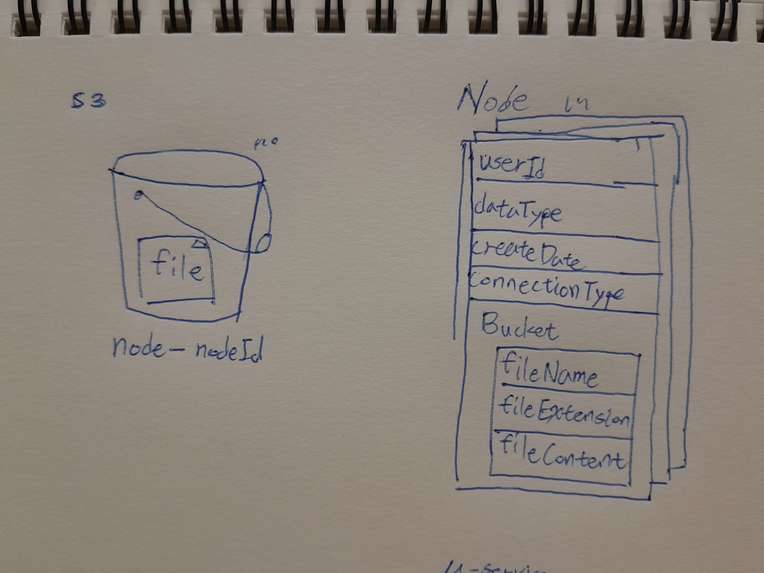 S3
file
node - nodeId
Node
userId
dataType
createDate
connectionType
Bucket
fileName
fileExtension
fileContent